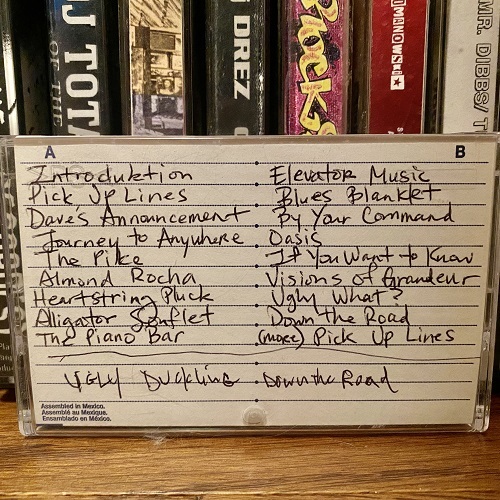 J TOTA
OF THE
DREZ
Rocks
OMANOWSKI
MR. DIBBS/
A B
Introduktion Elevator Music
Pick Up Lines Blues Blanket
Dave's Announcement By Your Command
Journey to Anywhere Oasis
The Pike If You Want to Know
Almond Rocha Visions of Grandeur
Heartstring Pluck Ugly What?
Alligator Souflet Down the Road
The Piano Bar (more) Pick Up Lines
Ugly Duckling Down the Road
Assembled in Mexico.
Assemblé au Mexique.
Ensamblado en México.